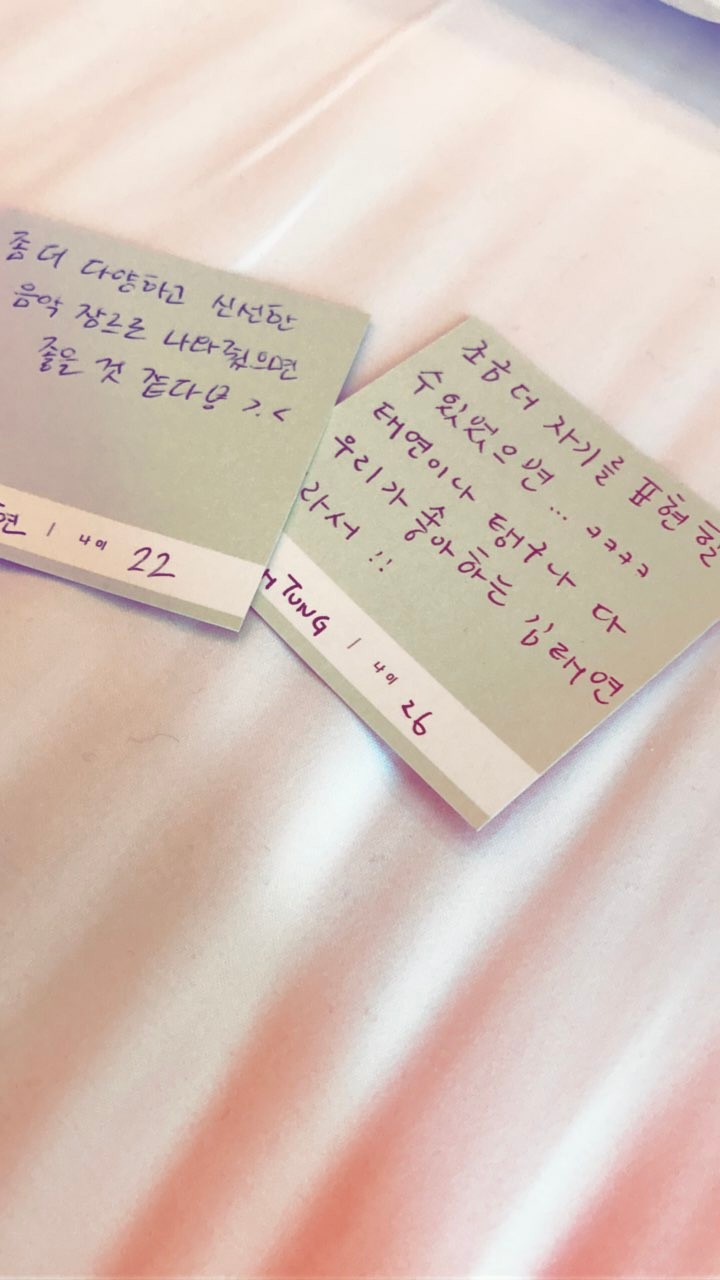 좀 더 다양하고 신선한
음악 장르로 나타줬으면
좋을 것 같다봉 >.<
연 / 나이 22
조금 더 자기를 표현할
수 있었으면... ㅋㅋㅋㅋ
태연이나 탱구나 다
우리가 좋아하는 김태연
라서 !!
TUNG / 나이 26